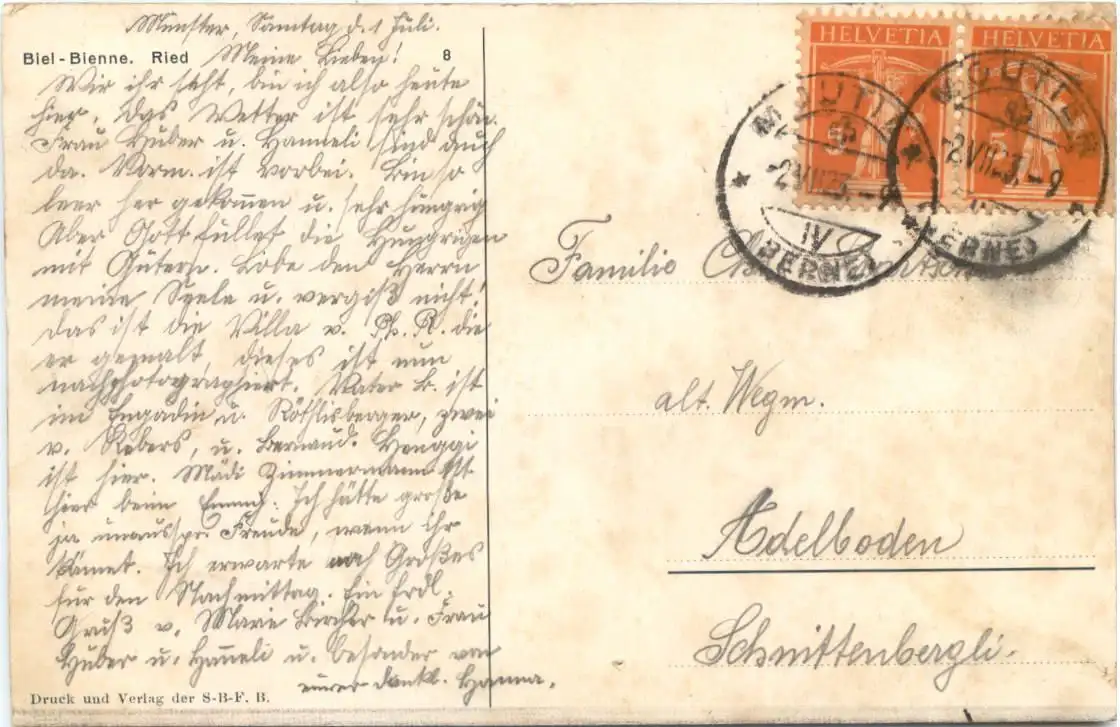 Münster, Samstag d. 1 Juli.
Biel-Bienne. Ried
8
Meine Lieben!
Wir ihr seht, bin ich also heute
hier. Das Wetter ist sehr schön.
Frau Huber u. Hanneli sind auch
da. Vorm. ist vorbei. Bin so
leer her gekommen u. sehr hungrig
Aber Gott füllet die Hungrigen
mit Gütern. Lobe den Herrn
meine Seele u. vergiß nicht!
Das ist die Villa v. Ph. R. die
er gemalt, dieses ist nun
nachphotographiert. Vater B. ist
im Engadin u. Röthlisberger, zwei
v. Rebers, u. Bernand. Henggi
ist hier. Mädi Zimmermann ist
hier beim Emmy. Ich hätte große
ja unausspr. Freude, wenn ihr
kämet. Ich erwarte noch Großes
für den Nachmittag. Ein frdl.
Gruß v. Marie Bircher u. Frau
Huber u. Hanneli u. besonder von
eurer dankb. Hanna.
Druck und Verlag der S-B-F. B.
HELVETIA
HELVETIA
5
5
MOUTIER
-2.VII.23.-9
IV
(BERNE)
MOUTIER
-2.VII.23.-9
(BERNE)
Familie
alt. Wegm.
Adelboden
Schnittenbergli.